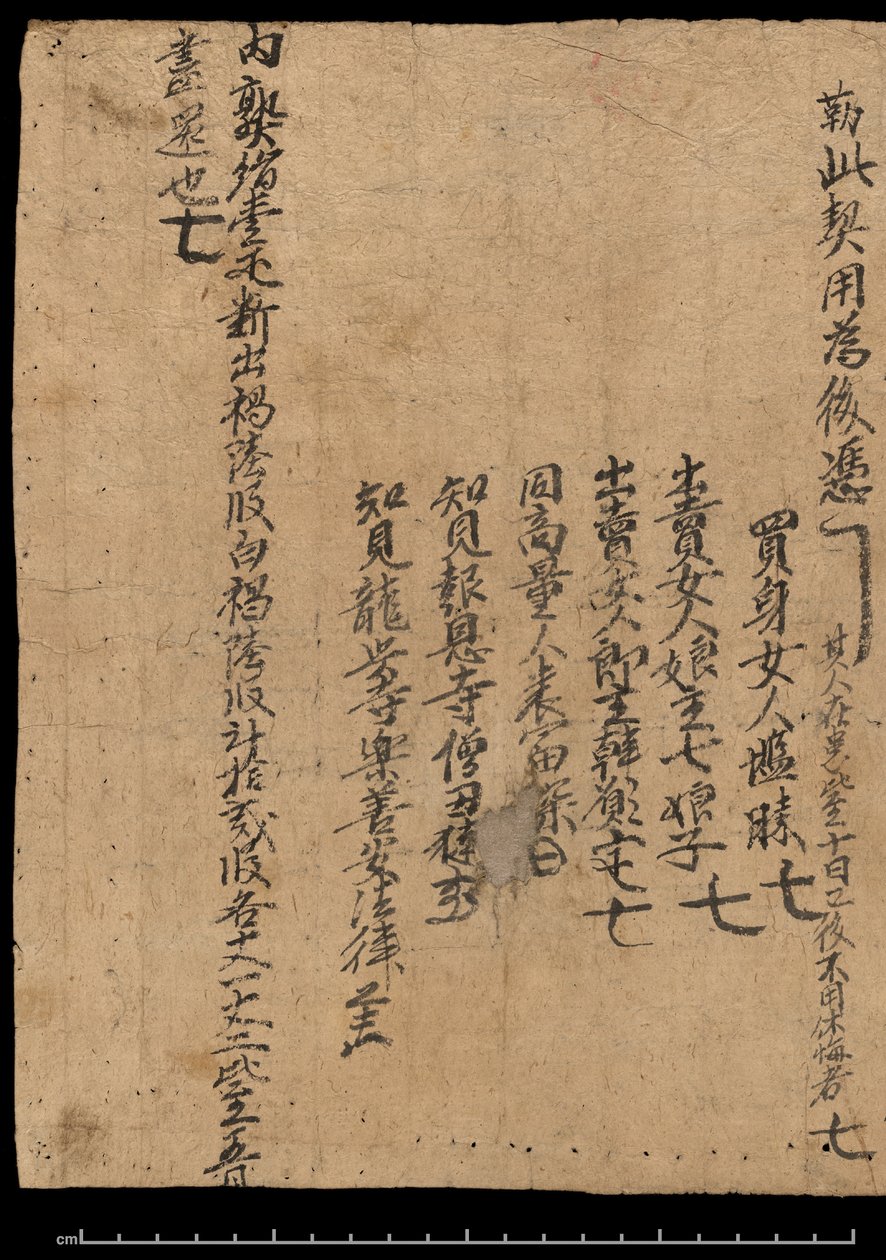 勒此契用為後憑 其人在患比至十日已後不用休悔者
買身女人𡎺勝
出賣女人娘主七娘子
出賣女人郎主韓願定
同商量人袁富深
知見報恩寺僧丑撻
知見龍興寺樂善安法律
內熟絹壹疋断出褐陸段白褐陸段計拾貳段各丈一丈二比至五月
盡還也